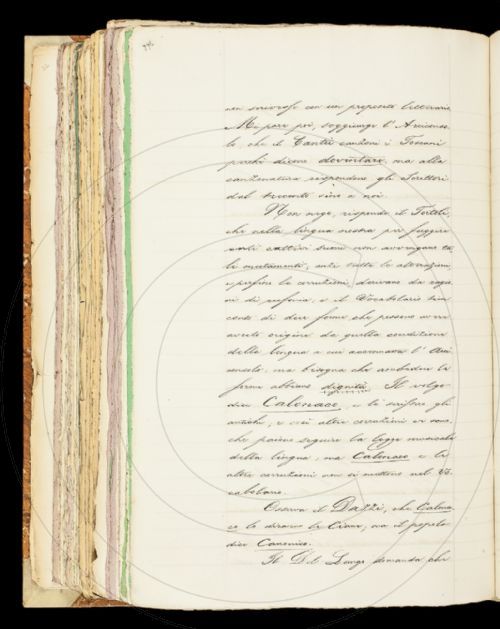 non scrivesse con un proposito letterario.
Mi pare poi, soggiunge l'Arcicon-
lo, che il Cantù canzoni i Toscani
perchè dicono doventare, ma alla
canzonatura rispondono gli Scrittori
dal trecento sino a noi.
Non nego, risponde il Tortoli,
che nella lingua nostra per fuggire
certi cattivi suoni non avvengano ta-
li mutamenti, anzi tutte le alterazioni
e perfino le corruzioni derivano da ragio-
ni di eufonia, e il Vocabolario tien
conto di due forme che possono aver
avuto origine da quella condizione
della lingua a cui accennava l'Arci
ma bisogna che ambedue le
forme abbiano dignità. Il volgo
dice Calonaco, e lo scrissero gli
antichi, e così altre corruzioni vi sono,
che paiono seguire la legge musicale
della lingua, ma Calonaco e le
altre corruzioni non si mettono nel Vo-
cabolario.
Osserva il Dazzi, che Calona-
co lo dicono le Cronache, ma il popolo
dice Canonico.
Il Del Lungo domanda che